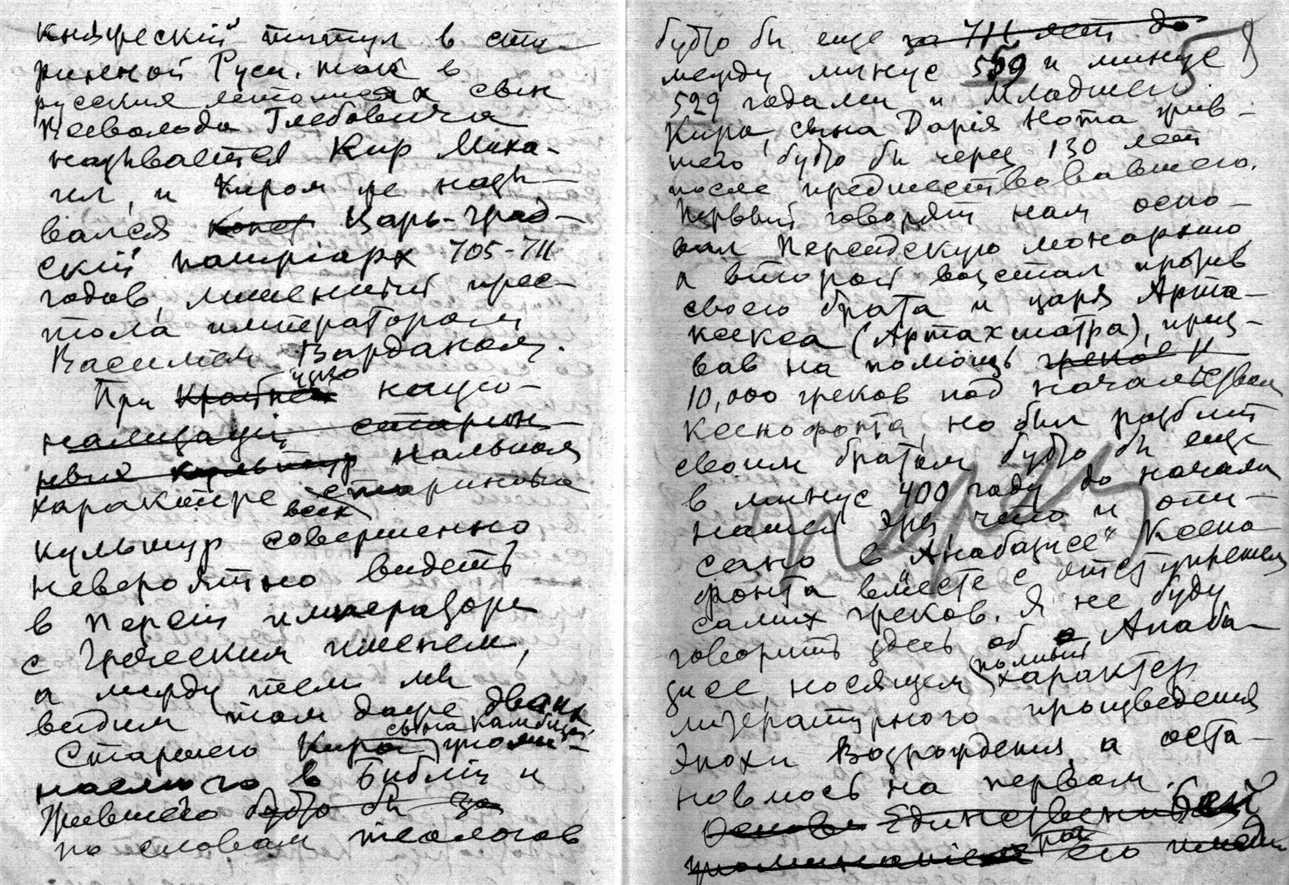 княжескій титул в ста-
ринной Руси. так в
русских летописях сын
Всеволода Глебовича
называется Кир Миха-
ил, и Киром же назы-
вался Конст Царь-град-
скій патріарх 705-711
годов, лишенный прес-
тола императором
Василием Варданом.
При чисто нацио-
нальном
характере всех старинных
культур совершенно
невероятно видеть
в Персіи императоров
с греческим именем,
а между тем мы
видим там даже двоих
Старшего Кира, сына Камбиза, упоми-
наемого в Библіи и
Жившего будто бы за
по словам теологов
будто бы еще за 711 лет до
58
между минус 559 и минус
529 годами и Младшего
Кира, сына Дарія Нота жив-
шего будто бы через 130 лет
после предшествовавшего.
Первый говорят нам осно-
вал Персидскую монархию,
а второй возстал против
своего брата и царя Арта-
ксекса (Артахшатра), приз-
вав на помощь греков и
10,000 греков под начальством
Ксенофонта, но был разбит
своим братом будто бы еще
в минус 400 году до начала
нашей эры, что и опи-
сано в „Анабазисе" Ксено-
фонта вместе с отступлением
самих греков. Я не буду
говорить здесь об Анаба-
зисе, носящем характер
литературного произведения
Эпохи Возрождения, а оста-
новлюсь на первом.
Основы Единственный
его имени